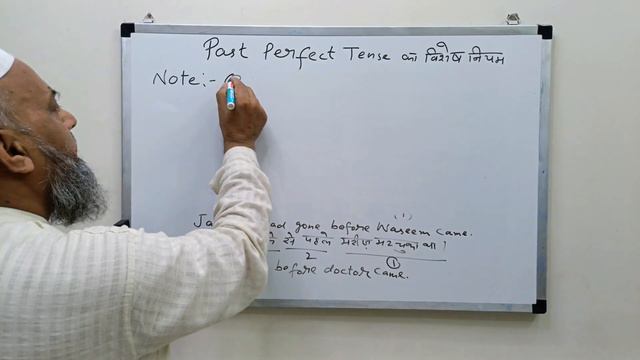 Past Perfect Tense का विशेष नियम
Note:-
(1)
Ja ad gone before Waseem came.
से पहले मरीज़ मर चुका था।
2 ①
before doctor came.